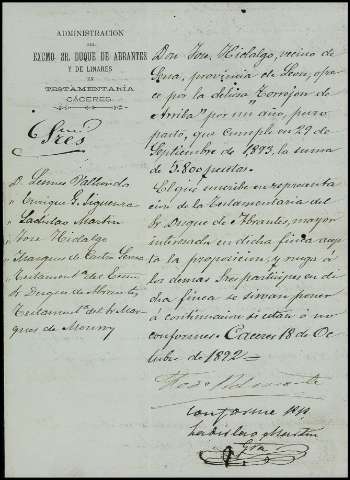 ADMINISTRACION
DEL
EXCMO SR. DUQUE DE ABRANTES
Y DE LINARES
TESTAMENTARIA
CÁCERES
Sres
D.
" Enrique G. Figueroa
" Ladislao Martin
" Jose Hidalgo
" Marques de Castro Serna
" Testamentª del Excmo
Sr Duque de Abrantes
Testamentª del Mar
ques de Monroy
Don Jose Hidalgo, vecino de
Sena, provincia de Leon, ofre
ce por la dehesa "Torrejon de
Arriba" por un año, puro
pasto, que cumple en 29 de
Septiembre de 1893, la suma
de 5.800 pesetas.
El que suscribe en representa
cion de la testamentaria del
Sr Duque de Abrantes, mayor
interesado en dicha finca acep
ta la proposicion, y ruega á
los demas Sres participes en di
cha finca se sirvan poner
á continuacion si estan ó no
conformes. Caceres 18 de Oc
tubre de 1892
conforme
Ladislao Martin